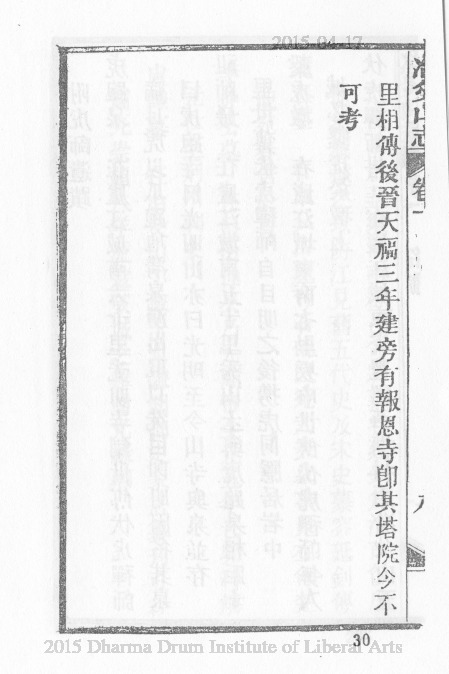 2015-04-17
里相傳後晉天福三年建旁有報恩寺卽其塔院今不
可考
志
卷
八
30
2015 Dharma Drum Institute of Liberal Arts